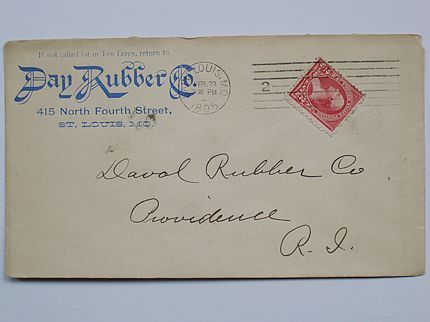 If not called for in Ten Days, return to
Day Rubber Co.
415 North Fourth Street,
ST. LOUIS, MO.
LOUIS, MO.
PM
1895
2
Daval Rubber Co
Providence
R. I.